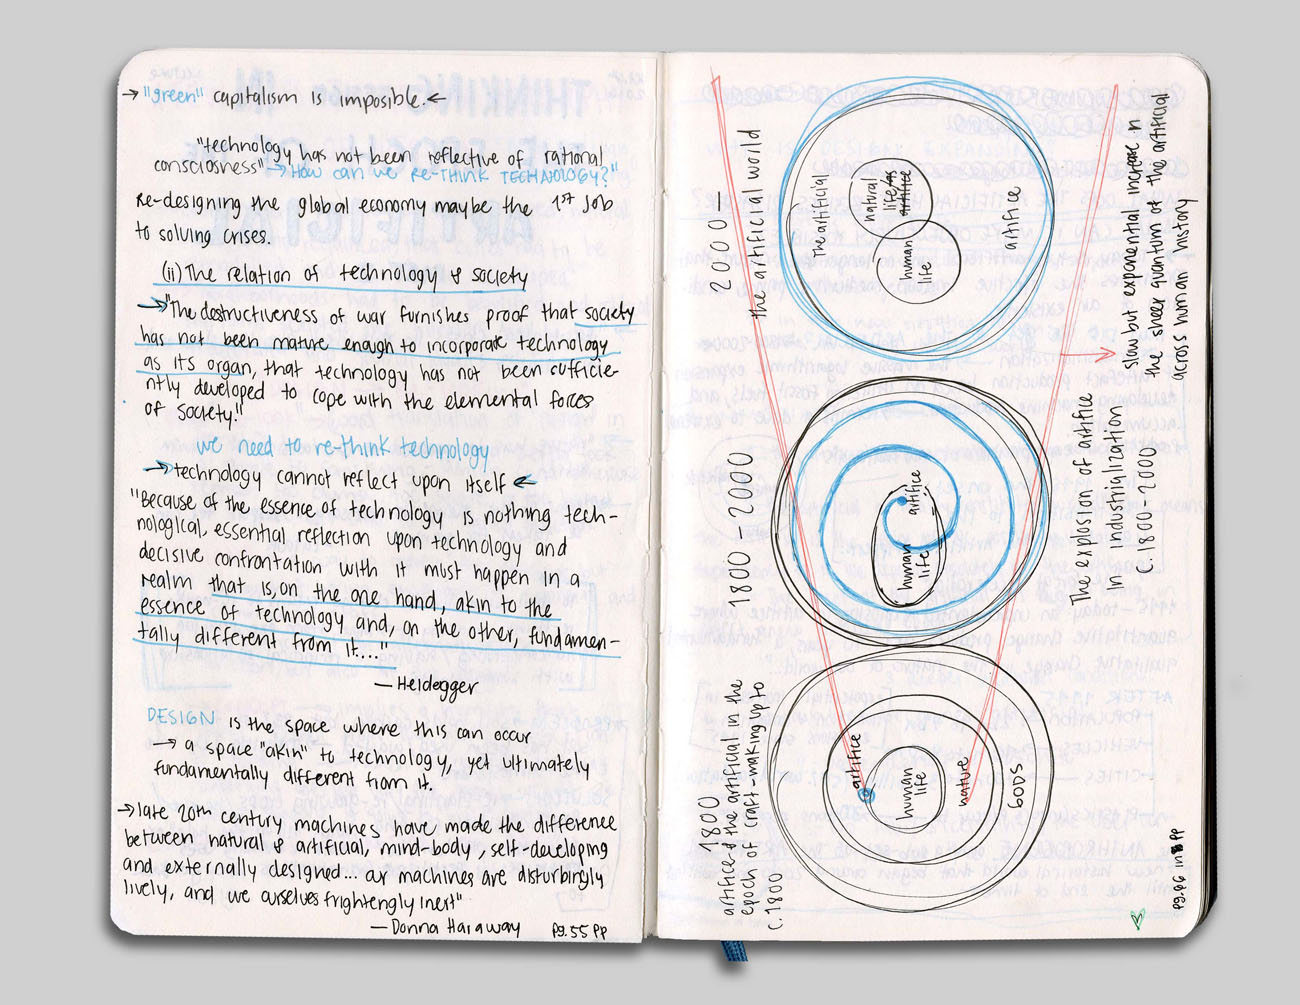 →"green" capitalism is imposible.←
"technology has not been reflective of rational
consciosness"→"How can we RE-THINK TECHNOLOGY?"
Re-designing the global economy maybe the 1st Job
to solving crises.
(ii) The relation of technology & society
→"The destructiveness of war furnishes proof that society
has not been mature enough to incorporate technology
as its organ, that technology has not been sufficie-
ntly developed to cope with the elemental forces
of society."
we need to re-think technology
→technology cannot reflect upon itself←
"Because of the essence of technology is nothing tech-
nological, essential reflection upon technology and
decisive confrontation with it must happen in a
realm that is, on the one hand, akin to the
essence of technology and, on the other, fundamen-
tally different from it...."
—Heidegger
DESIGN is the space where this can occur
→ a space "akin" to technology, yet ultimately
fundamentally different from it.
→late 20th century machines have made the difference
between natural & artificial, mind-body, self-developing
and externally designed... our machines are disturbingly
lively, and we ourselves frightengly inert"
—Donna Haraway pg.55 PP
2000—
the artificial world
The artificial
natural
life as
artifice
human
life
artifice
slow but exponential increase in
the sheer quantum of the artificial
across human history
1800—2000
artifice
human
life
The explosion of artifice
in industrialization
c.1800-2000
1800
artifice & the artificial in the
epoch of craft-making up to
c.1800
artifice
human
life
nature
GODS
pg.96 in PP